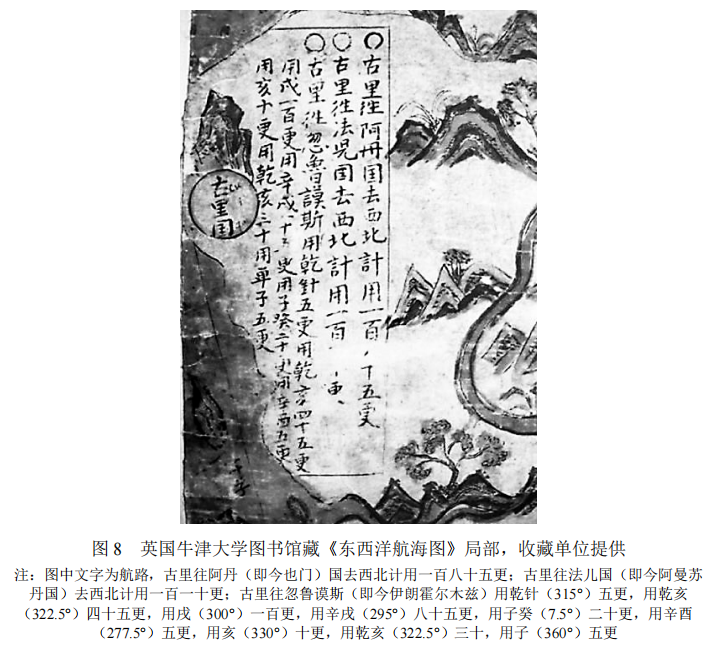 古里往阿丹国去西北計用一百八十五更
古里往法児国去西北計用一百更
古里往忽魯謨斯用乾針五更用乾亥四十五更
用戌一百更用辛戌八十五更用子癸二十更用辛酉五更
用亥十更用乾亥三十用单子五更
古里国
图 8 英国牛津大学图书馆藏《东西洋航海图》局部，收藏单位提供
注：图中文字为航路，古里往阿丹（即今也门）国去西北计用一百八十五更；古里往法儿国（即今阿曼苏
丹国）去西北计用一百一十更；古里往忽鲁谟斯（即今伊朗霍尔木兹）用乾针（315°）五更，用乾亥
（322.5°）四十五更，用戌（300°）一百更，用辛戌（295°）八十五更，用子癸（7.5°）二十更，用辛酉
（277.5°）五更，用亥（330°）十更，用乾亥（322.5°）三十，用子（360°）五更